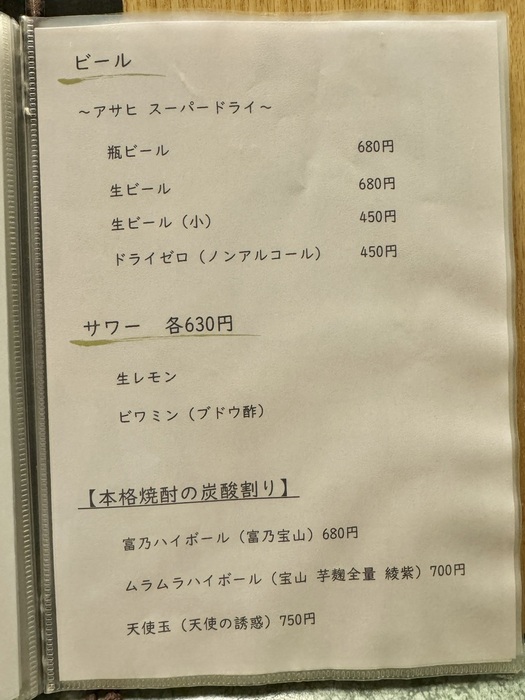 ビール
～アサヒ スーパードライ～
瓶ビール 680円
生ビール 680円
生ビール（小） 450円
ドライゼロ（ノンアルコール） 450円
サワー 各630円
生レモン
ビワミン（ブドウ酢）
【本格焼酎の炭酸割り】
富乃ハイボール（富乃宝山）680円
ムラムラハイボール（宝山 芋麹全量 綾紫）700円
天使玉（天使の誘惑）750円